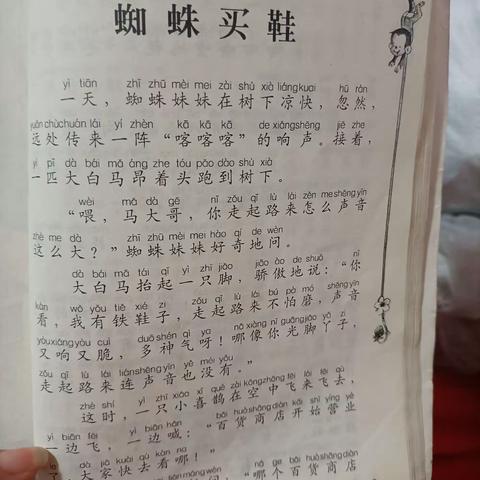 蜘蛛买鞋
yì tiān zhī zhū mèi mei zài shù xià liáng kuai hū rán
一天，蜘蛛妹妹在树下凉快，忽然，
yuǎn chù chuán lái yí zhèn kā kā kā de xiǎng shēng jiē zhe
远处传来一阵“喀喀喀”的响声。接着，
yì pǐ dà bái mǎ áng zhe tóu pǎo dào shù xià
一匹大白马昂着头跑到树下。
wèi mǎ dà gē nǐ zǒu qǐ lù lái zěn me shēng yīn
“喂，马大哥，你走起路来怎么声音
zhè me dà zhī zhū mèi mei hào qí de wèn
这么大？”蜘蛛妹妹好奇地问。
dà bái mǎ tái qǐ yì zhī jiǎo jiāo ào de shuō nǐ
大白马抬起一只脚，骄傲地说：“你
kàn wǒ yǒu tiě xié zi zǒu qǐ lù lái bú pà mó shēng yīn
看，我有铁鞋子，走起路来不怕磨，声音
yòu xiǎng yòu cuì duō shén qì ya nǎ xiàng nǐ guāng jiǎo yā zi
又响又脆，多神气呀！哪像你光脚丫子，
zǒu qǐ lù lái lián shēng yīn yě méi yǒu
走起路来连声音也没有。”
zhè shí yì zhī xiǎo xǐ què zài kōng zhōng fēi lái fēi qù
这时，一只小喜鹊在空中飞来飞去，
yì biān fēi yì biān hǎn bǎi huò shāng diàn kāi shǐ yíng yè
一边飞，一边喊：“百货商店开始营业
dà jiā kuài qù kàn na
了，大家快去看哪！”
nǎ ge bǎi huò shāng diàn
问，“哪个百货商店